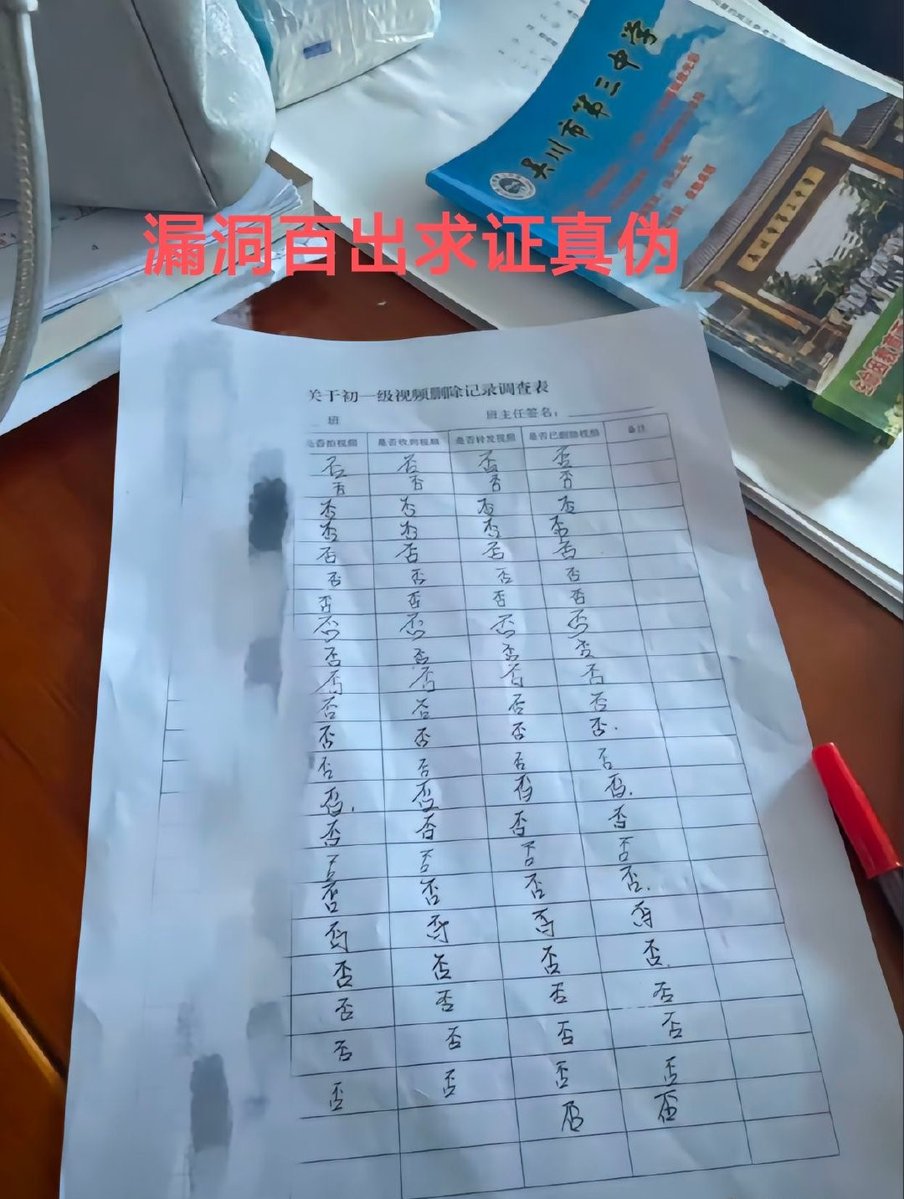 吴川市第三中学
漏洞百出求证真伪
关于初一级视频删除记录调查表
班 班主任签名：
是否拍视频 是否收到视频 是否转发视频 是否已删除视频 备注
否 否 否 否
否 否 否 否
否 否 否 否
否 否 否 否
否 否 否 否
否 否 否 否
否 否 否 否
否 否 否 否
否 否 否 否
否 否 否 否
否 否 否 否
否 否 否 否.
否 否 否 否
否. 否 否 否.
否 否 否 否
否 否 否 否
否 否 否 否.
否 否 否 否
否 否 否 否.
否 否 否 否
否 否 否 否
否 否 否 否
否 否